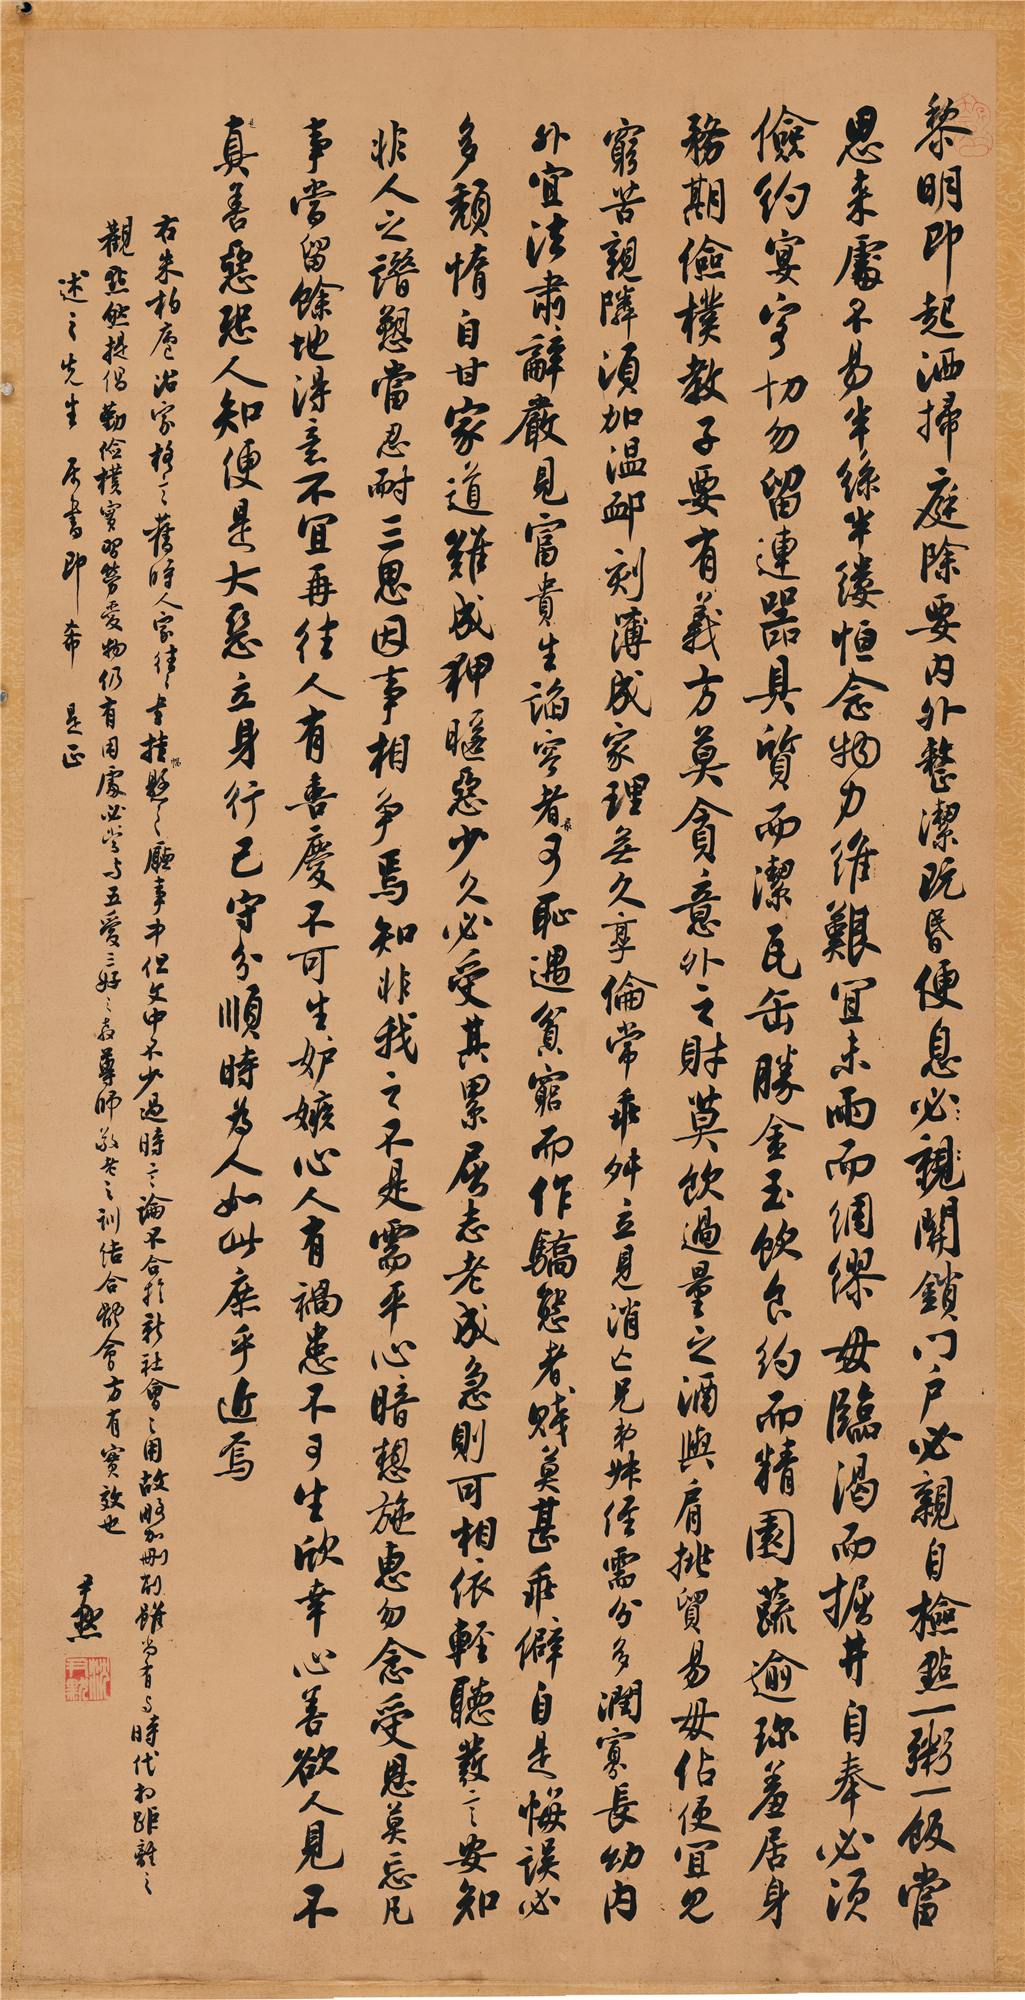 黎明即起洒掃庭除要內外整潔既昏便息必親關鎖門户必親自檢點一粥一飯當
思来處不易半絲半縷恒念物力維艱宜未雨而綢繆毋臨渴而掘井自奉必須
儉約宴客切勿留連器具質而潔瓦缶勝金玉飲食約而精園蔬逾珍羞居身
務期儉樸教子要有義方莫貪意外之財莫飲過量之酒與肩挑貿易毋佔便宜見
窮苦親隣須加温卹刻薄成家理無久享倫常乖舛立見消亡兄弟姊侄需分多潤寡長幼内
外宜法肅辭嚴見富貴生諂容者最可恥遇貧窮而作驕態者賤莫甚乖僻自是悔誤必
多頹惰自甘家道難成狎暱惡少久必受其累屈志老成急則可相依輕聽發言安知
非人之譖愬當忍耐三思因事相爭焉知非我之不是需平心暗想施惠勿念受恩莫忘凡
事當留餘地得意不宜再往人有喜慶不可生妒嫉心人有禍患不可生欣幸心善欲人見不
是真善惡恐人知便是大惡立身行己守分順時為人如此庶乎近焉
右朱柏廬治家格言舊時人家往往書挂幅懸之廳事中但文中不少過時之論不合於新社會之用故略加刪削雖尚有與時代相距離之
觀點然提倡勤儉樸實習勞愛物仍有用處必當與五愛三好之教尊師敬老之訓結合體會方有實效也
述之先生 屬書即希 是正
尹默
沈尹默